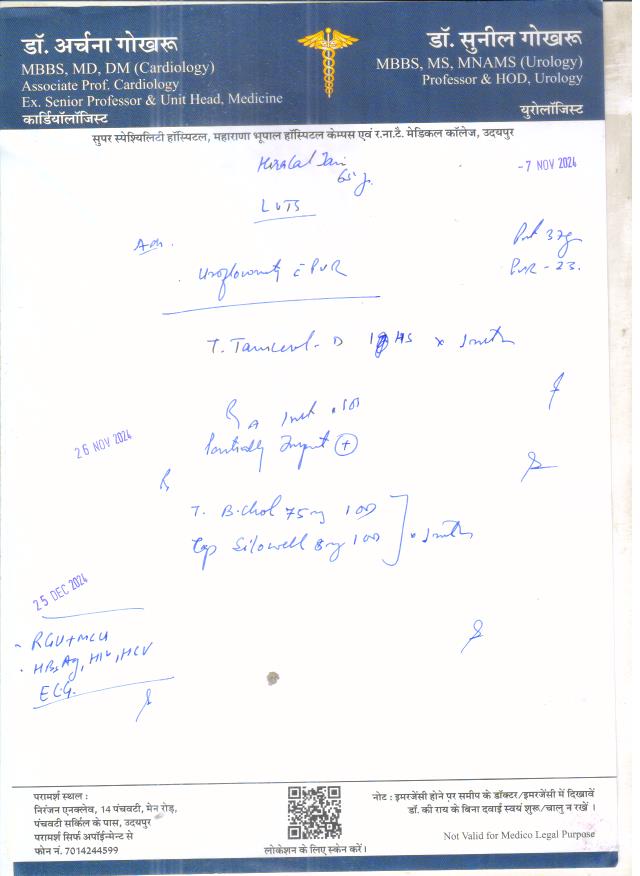 डॉ. अर्चना गोखरू
MBBS, MD, DM (Cardiology)
Associate Prof. Cardiology
Ex. Senior Professor & Unit Head, Medicine
कार्डियॉलॉजिस्ट
डॉ. सुनील गोखरू
MBBS, MS, MNAMS (Urology)
Professor & HOD, Urology
युरोलॉजिस्ट
सुपर स्पेश्यिलिटी हॉस्पिटल, महाराणा भूपाल हॉस्पिटल केम्पस एवं र.ना.टै. मेडिकल कॉलेज, उदयपुर
Hiralal Jain
65 y.
-7 NOV 2024
LUTS
Adv.
Uroflowmetry c̄ PVR
Prst 37g
PVR - 23.
T. Tamceul-D 1 HS x 1 mth
26 NOV 2024
Partially Imprt +
R
T. B.chol 75mg 1OD
Cap Silowell 8mg 1OD
x 1 mth
25 DEC 2024
- RGU+MCU
. HBsAg, HIV, HCV
ECG.
परामर्श स्थल :
निरंजन एनक्लेव, 14 पंचवटी, मेन रोड़,
पंचवटी सर्किल के पास, उदयपुर
परामर्श सिर्फ अपॉईन्मेन्ट से
फोन नं. 7014244599
लोकेशन के लिए स्केन करें।
नोट : इमरजेंसी होने पर समीप के डॉक्टर/इमरजेंसी में दिखावें
डॉ. की राय के बिना दवाई स्वयं शुरू/चालु न रखें ।
Not Valid for Medico Legal Purpose